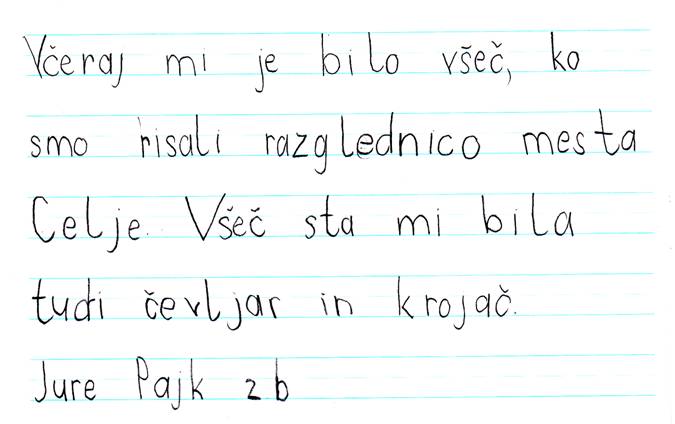 Včeraj mi je bilo všeč, ko
smo risali razglednico mesta
Celje. Všeč sta mi bila
tudi čevljar in krojač.
Jure Pajk 2b